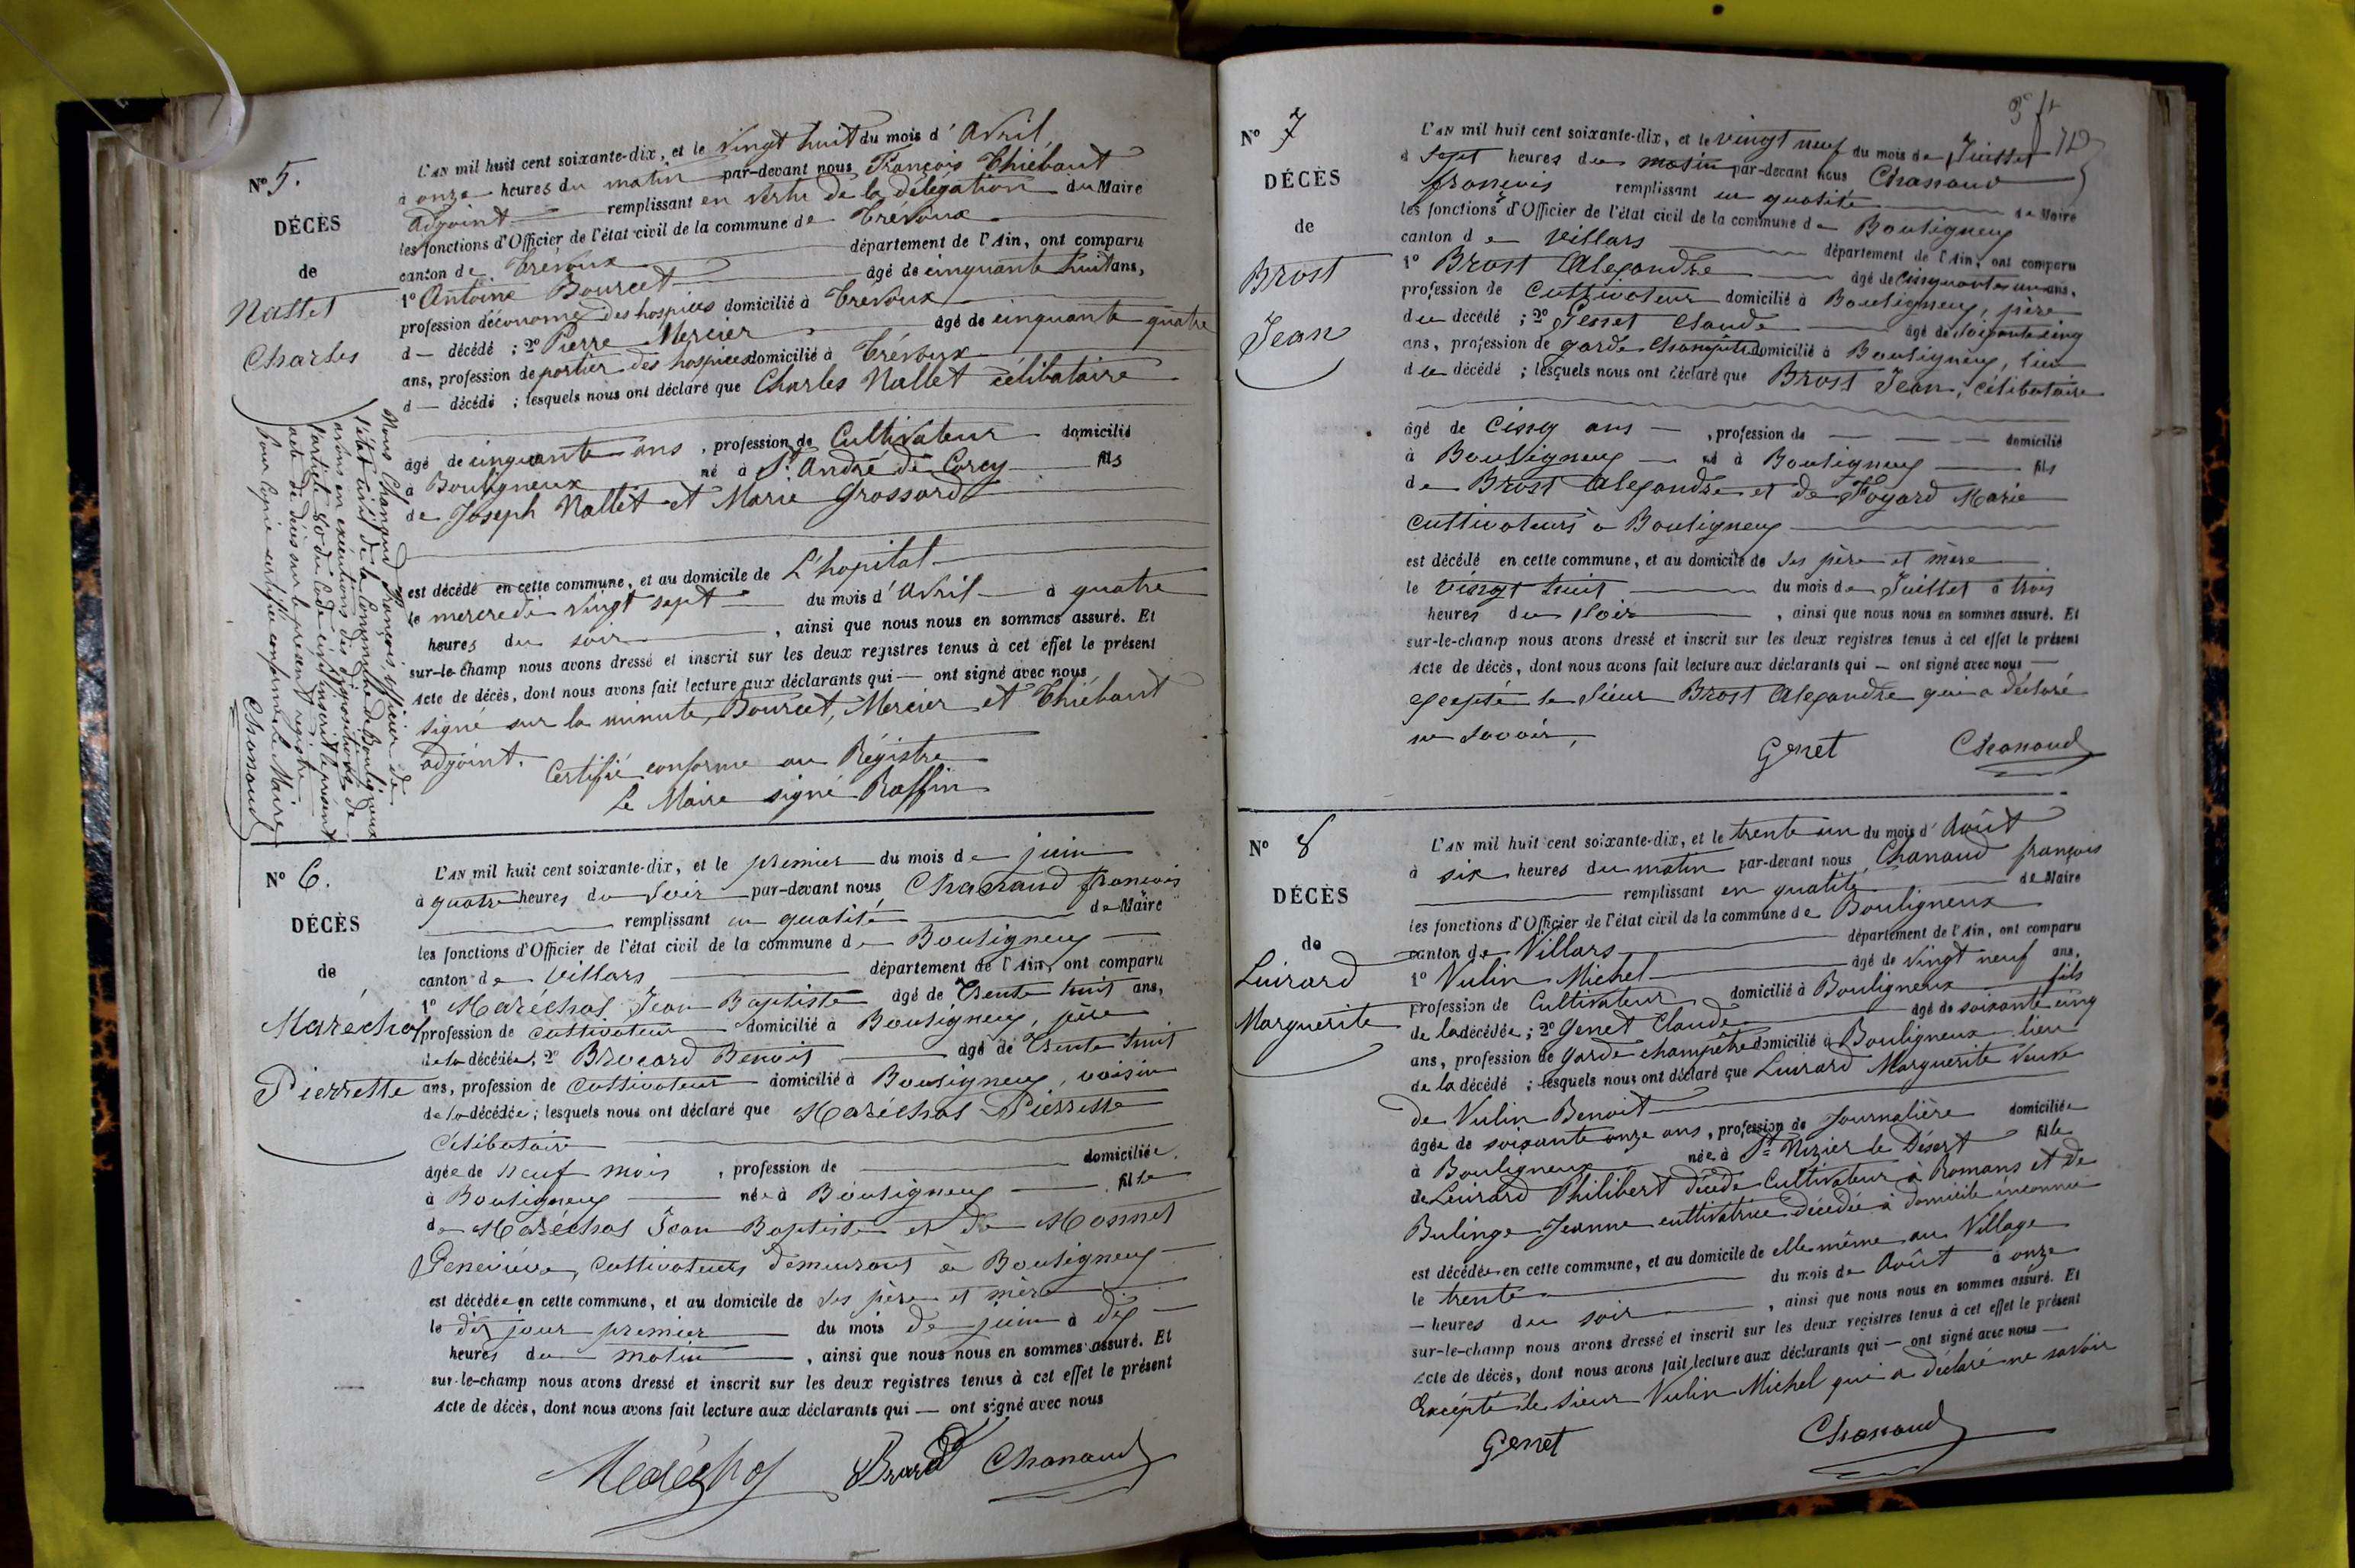 N° 5.
DÉCÈS
de
Nallet
Charles
L'AN mil huit cent soixante-dix, et le vingt huit du mois d'Avril
à onze heures du matin par-devant nous François Thiébaut
adjoint remplissant en vertu de la délégation du Maire
les fonctions d'Officier de l'état civil de la commune de Trévoux
canton de Trévoux département de l'Ain, ont comparu
1° Antoine Bourcet âgé de cinquante huit ans,
profession d'économe des hospices domicilié à Trévoux
d — décédé ; 2° Pierre Mercier âgé de cinquante quatre
ans, profession de portier des hospices domicilié à Trévoux
d — décédé ; lesquels nous ont déclaré que Charles Nallet célibataire
âgé de cinquante ans , profession de Cultivateur domicilié
à Bouligneux né à St André de Corcy fils
de Joseph Nallet et Marie Grossard
est décédé en cette commune, et au domicile de L'hopital
le mercredi vingt sept du mois d'Avril à quatre
heures du soir , ainsi que nous nous en sommes assuré. Et
sur-le-champ nous avons dressé et inscrit sur les deux registres tenus à cet effet le présent
Acte de décès, dont nous avons fait lecture aux déclarants qui — ont signé avec nous
signé sur la minute Bourcet, Mercier et Thiébaut
adjoint.
Certifié conforme au Régistre
Le Maire signé Raffin
Nous Chanaud François, officier de
l'état civil de la Commune de Bouligneux
avons en exécutions des dispositions de
l'article 80 du Code civil inscrit le présent
acte de décès sur le présent registre
Pour Copie certifiée conforme Le Maire
Chanaud
N° 6.
DÉCÈS
de
Maréchal
Pierrette
L'AN mil huit cent soixante-dix, et le premier du mois de juin
à quatre heures du soir par-devant nous Chanaud françois
remplissant en qualité de Maire
les fonctions d'Officier de l'état civil de la commune de Bouligneux
canton de Villars département de l'Ain, ont comparu
1° Maréchal Jean Baptiste âgé de Trente huit ans,
profession de cultivateur domicilié à Bouligneux, père
de la décédée ; 2° Brocard Benoit âgé de Trente huit
ans, profession de cultivateur domicilié à Bouligneux, voisin
de la décédée ; lesquels nous ont déclaré que Maréchal Pierrette
Célibataire
âgée de neuf mois , profession de domiciliée
à Bouligneux née à Bouligneux fille
de Maréchal Jean Baptiste et de Monnet
Geneviève, cultivateurs demeurant à Bouligneux
est décédée en cette commune, et au domicile de ses père et mère
le dis jour premier du mois de juin à dix
heures du matin , ainsi que nous nous en sommes assuré. Et
sur-le-champ nous avons dressé et inscrit sur les deux registres tenus à cet effet le présent
Acte de décès, dont nous avons fait lecture aux déclarants qui — ont signé avec nous
Maréchal Chanaud
N° 7
DÉCÈS
de
Brost
Jean
L'AN mil huit cent soixante-dix, et le vingt neuf du mois de Juillet
à Sept heures du matin par-devant nous Chanaud
françois remplissant en qualité de Maire
les fonctions d'Officier de l'état civil de la commune de Bouligneux
canton de Villars département de l'Ain, ont comparu
1° Brost Alexandre âgé de cinquante un ans,
profession de Cultivateur domicilié à Bouligneux, père
du décédé ; 2° Genet Claude âgé de soixante cinq
ans, profession de garde champêtre domicilié à Bouligneux, lieu
du décédé ; lesquels nous ont déclaré que Brost Jean, célibataire
âgé de Cinq ans — , profession de — domicilié
à Bouligneux — né à Bouligneux fils
de Brost Alexandre et de Foyard Marie
cultivateurs à Bouligneux
est décédé en cette commune, et au domicile de ses père et mère
le vingt huit du mois de Juillet à trois
heures du soir , ainsi que nous nous en sommes assuré. Et
sur-le-champ nous avons dressé et inscrit sur les deux registres tenus à cet effet le présent
Acte de décès, dont nous avons fait lecture aux déclarants qui — ont signé avec nous —
excepté le sieur Brost Alexandre qui a déclaré
ne savoir,
Genet Chanaud
N° 8
DÉCÈS
de
Luirard
Marguerite
L'AN mil huit cent soixante-dix, et le trente un du mois d'Août
à six heures du matin par-devant nous Chanaud françois
remplissant en qualité de Maire
les fonctions d'Officier de l'état civil de la commune de Bouligneux
canton de Villars département de l'Ain, ont comparu
1° Vulin Michel âgé de vingt neuf ans,
profession de Cultivateur domicilié à Bouligneux fils
de la décédée ; 2° Genet Claude âgé de soixante cinq
ans, profession de garde champêtre domicilié à Bouligneux lieu
de la décédé ; lesquels nous ont déclaré que Luirard Marguerite Veuve
de Vulin Benoit
âgée de soixante onze ans , profession de Journalière domiciliée
à Bouligneux née à St Nizier le Désert fille
de Luirard Philibert décédé Cultivateur à Romans et de
Bulinge Jeanne cultivatrice décédée à domicile inconnu
est décédée en cette commune, et au domicile de elle même au Village
le trente du mois de Août à onze
— heures du soir , ainsi que nous nous en sommes assuré. Et
sur-le-champ nous avons dressé et inscrit sur les deux registres tenus à cet effet le présent
Acte de décès, dont nous avons fait lecture aux déclarants qui — ont signé avec nous —
Excépté le sieur Vulin Michel qui a déclaré ne savoir
Genet Chanaud